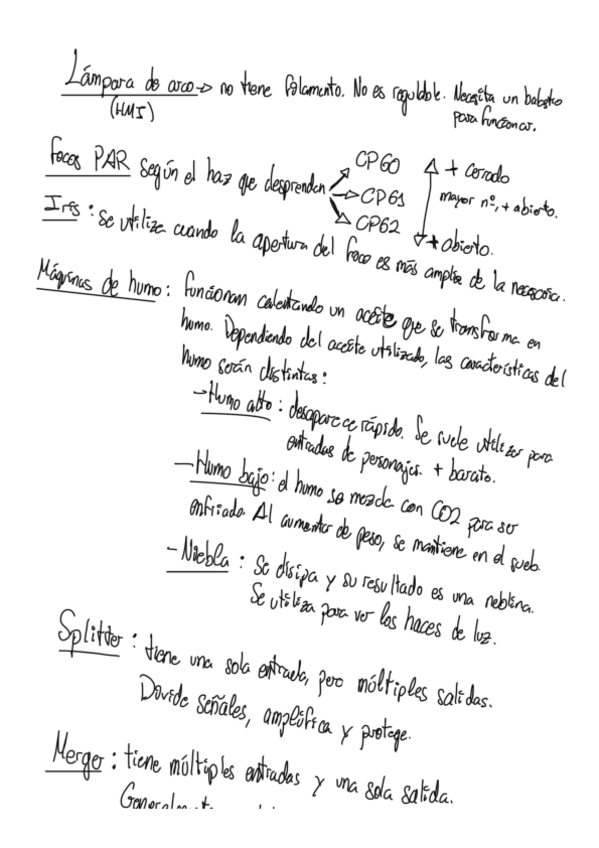 Lámpara de arco → no tiene filamento. No es regulable. Necesita un balastro
(HMI) para funcionar.
Focos PAR según el haz que desprenden → CP60 △ + Cerrado
→ CP61 mayor nº, + abierto.
→ CP62 ▽ + abierto.
Iris: se utiliza cuando la apertura del foco es más amplia de la necesaria.
Máquinas de humo: funcionan calentando un aceite que se transforma en
humo. Dependiendo del aceite utilizado, las características del
humo serán distintas:
→ Humo alto: desaparece rápido. Se suele utilizar para
entradas de personajes. + barato.
- Humo bajo: el humo se mezcla con CO2 para ser
enfriado. Al aumentar de peso, se mantiene en el suelo.
- Niebla: Se disipa y su resultado es una neblina.
Se utiliza para ver los haces de luz.
Splitter: tiene una sola entrada, pero múltiples salidas.
Divide señales, amplifica y protege.
Merger: tiene múltiples entradas y una sola salida.
Generalmente